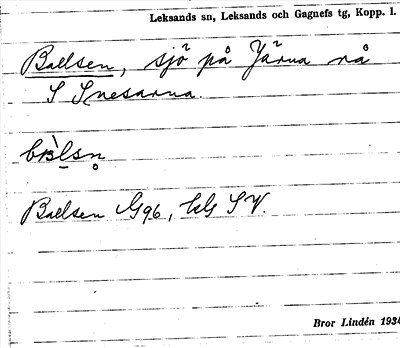 Leksands sn, Leksands och Gagnefs tg, Kopp. l.
Ballsen, sjö på Järna rå
S Snesarna.
Ballsen G96, S V.
Bror Lindén 1934